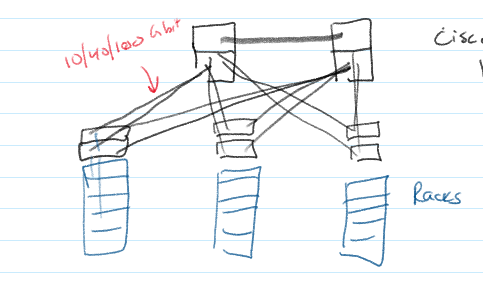 10/40/100 Gbit
Cisco
Racks